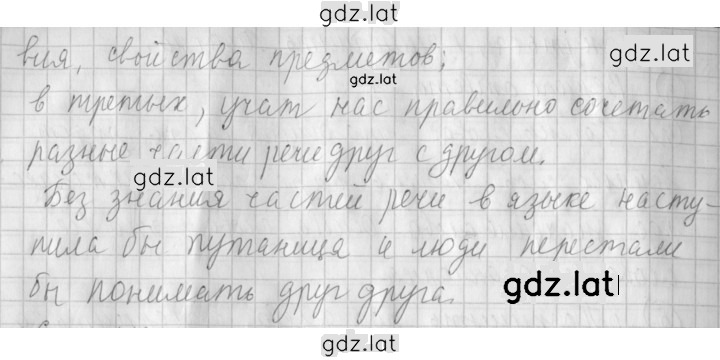 gdz.lat
вия, свойства предметов;
gdz.lat
gdz.lat
в третьих, учат нас правильно сочетать
разные части речи друг с другом.
gdz.lat
Без знания частей речи в языке насту-
пила бы путаница и люди перестали
бы понимать друг друга.
gdz.lat
gdz.lat